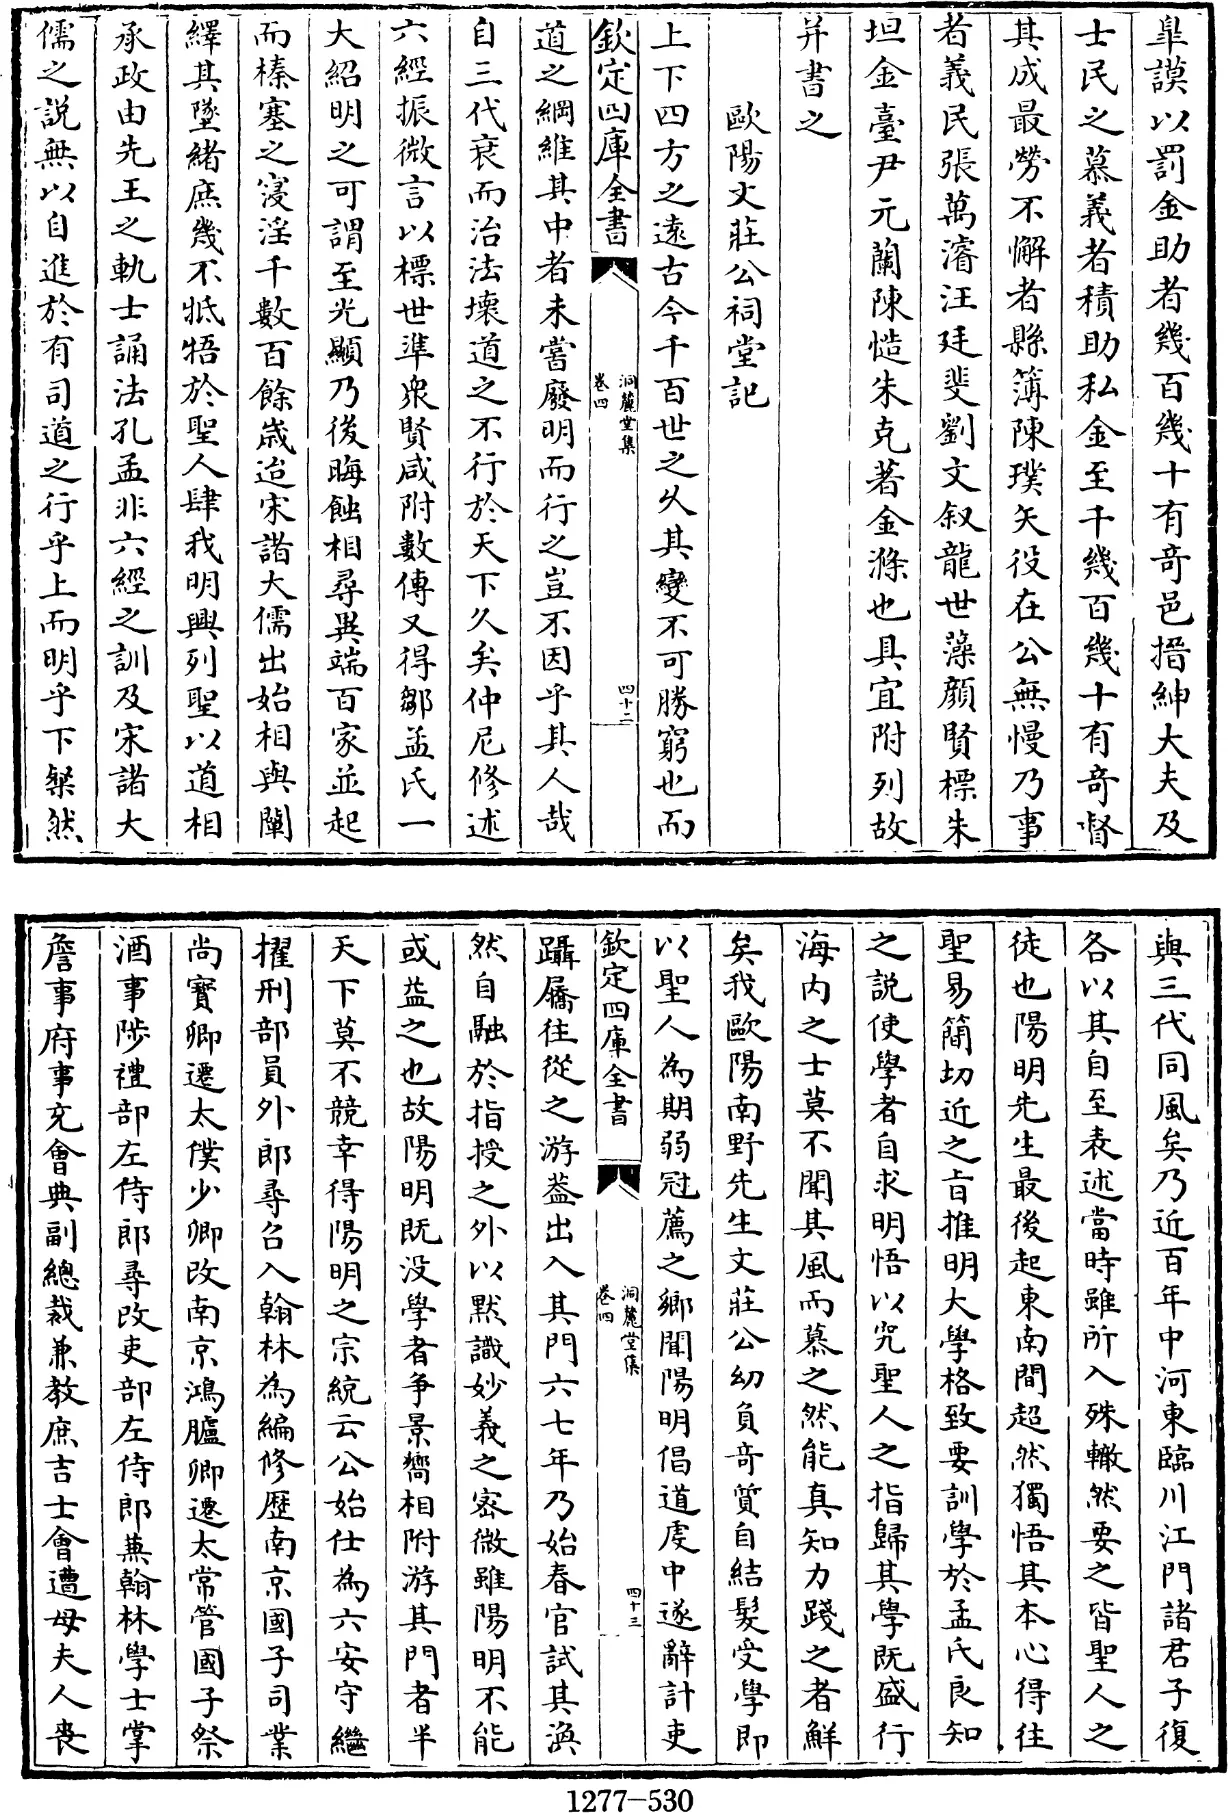 皐謨以罰金助者幾百幾十有竒邑搢紳大夫及
士民之慕義者積助私金至千幾百幾十有竒督
其成最勞不懈者縣簿陳璞矢役在公無慢乃事
者義民張萬濬汪廷斐劉文叙龍世藻顔賢標朱
坦金臺尹元蘭陳慥朱克著金滌也具宜附列故
并書之
歐陽文莊公祠堂記
上下四方之逺古今千百世之乆其變不可勝窮也而
欽定四庫全書
洞麓堂集
卷四
四十二
道之綱維其中者未嘗廢明而行之豈不因乎其人哉
自三代衰而治法壞道之不行於天下久矣仲尼修述
六經振微言以標世準衆賢咸附數傳又得鄒孟氏一
大紹明之可謂至光顯乃後晦蝕相尋異端百家並起
而榛塞之寖淫千數百餘歳迨宋諸大儒出始相與闡
繹其墜緒庶幾不牴牾於聖人肆我明興列聖以道相
承政由先王之軌士誦法孔孟非六經之訓及宋諸大
儒之説無以自進於有司道之行乎上而明乎下粲然
與三代同風矣乃近百年中河東臨川江門諸君子復
各以其自至表述當時雖所入殊轍然要之皆聖人之
徒也陽明先生最後起東南間超然獨悟其本心得往
聖易簡切近之旨推明大學格致要訓學於孟氏良知
之説使學者自求明悟以究聖人之指歸其學既盛行
海内之士莫不聞其風而慕之然能真知力踐之者鮮
矣我歐陽南野先生文莊公幼負竒質自結髪受學即
以聖人為期弱冠薦之鄉聞陽明倡道虔中遂辭計吏
欽定四庫全書
洞麓堂集
卷四
四十三
躡屩往從之游葢出入其門六七年乃始春官試其渙
然自融於指授之外以黙識妙義之宻微雖陽明不能
或益之也故陽明既没學者争景嚮相附游其門者半
天下莫不競幸得陽明之宗統云公始仕為六安守繼
擢刑部員外郎尋召入翰林為編修歴南京國子司業
尚寳卿遷太僕少卿改南京鴻臚卿遷太常管國子祭
酒事陟禮部左侍郎尋改吏部左侍郎兼翰林學士掌
詹事府事充會典副總裁兼教庶吉士會遭母夫人喪
1277-530